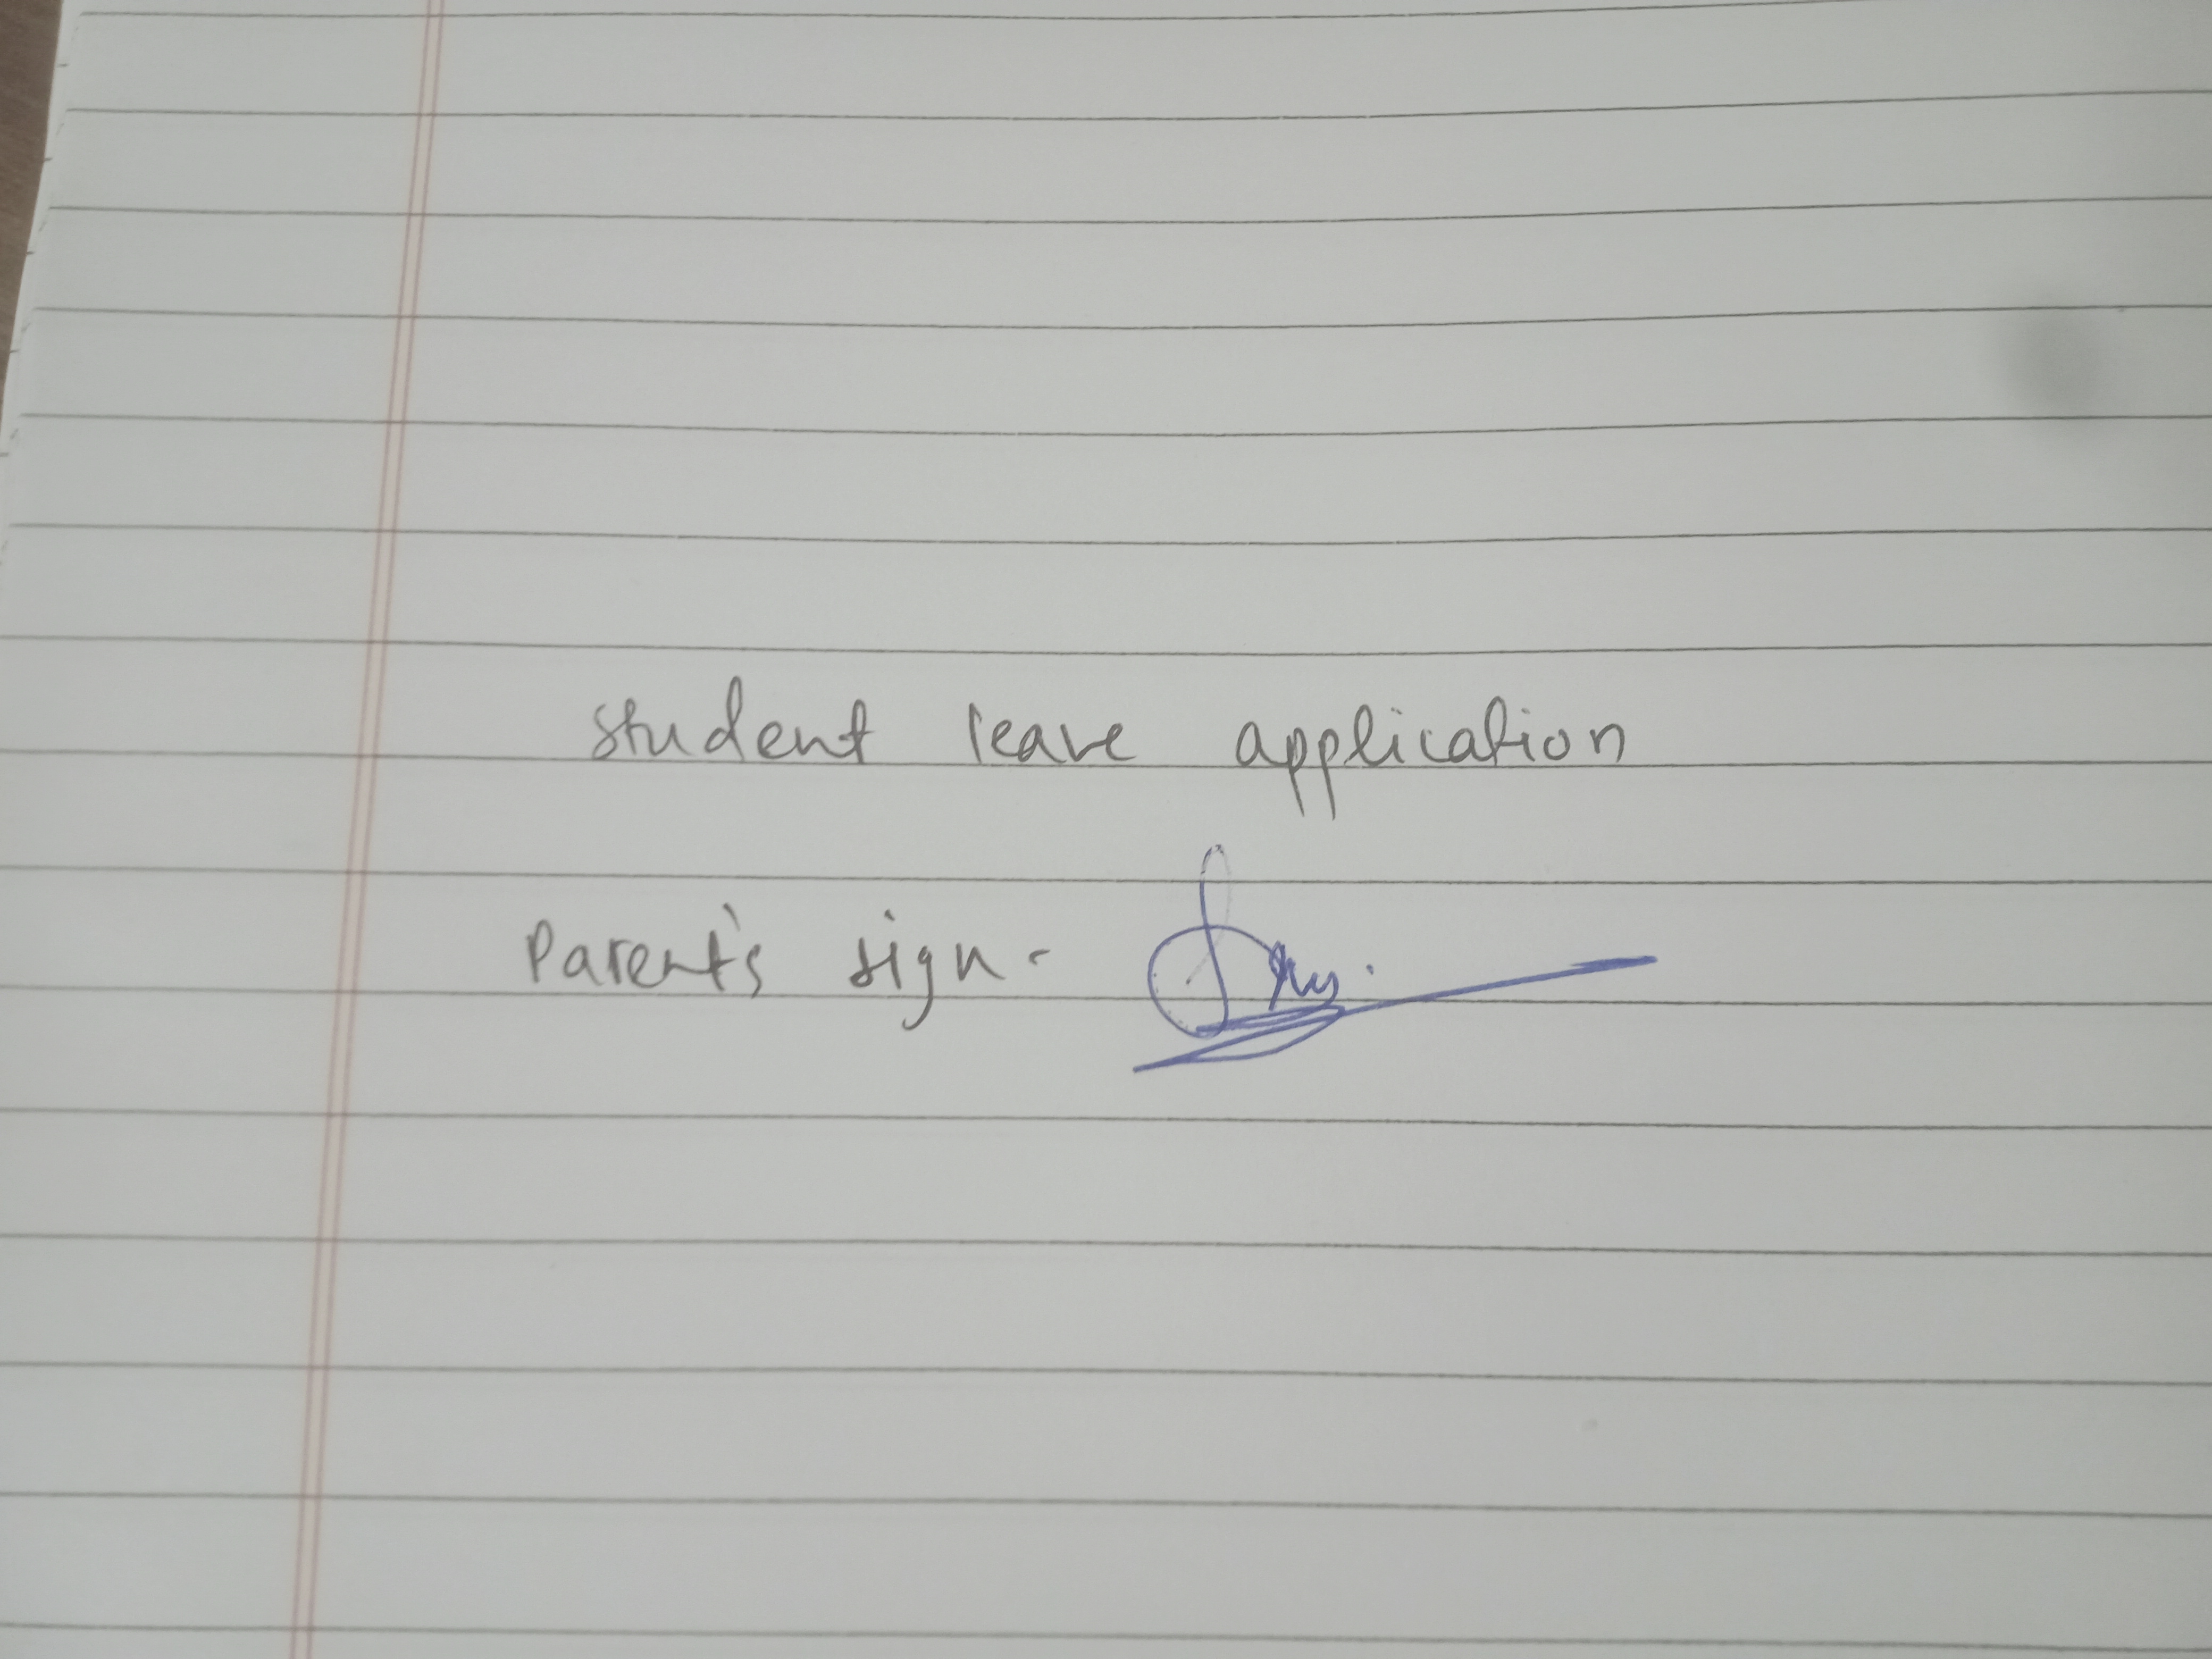 student leave application
Parent's sign -